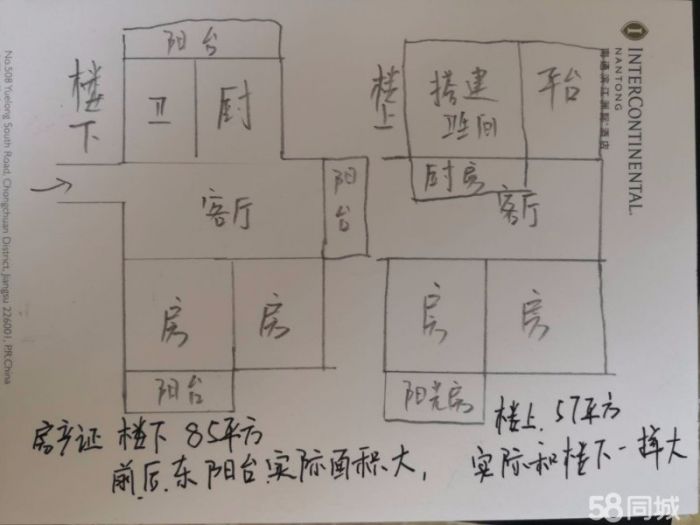 阳台
楼下
卫
厨
客厅
阳台
房
房
阳台
楼上
搭建
卫生间
平台
厨房
客厅
房
房
阳光房
房产证 楼下 85平方
楼上.57平方
前.后.东 阳台实际面积大,
实际和楼下一样大
INTERCONTINENTAL
NANTONG
No.508 Yuelong South Road, Chongchuan District, Jiangsu 226001, P.R.China
58同城